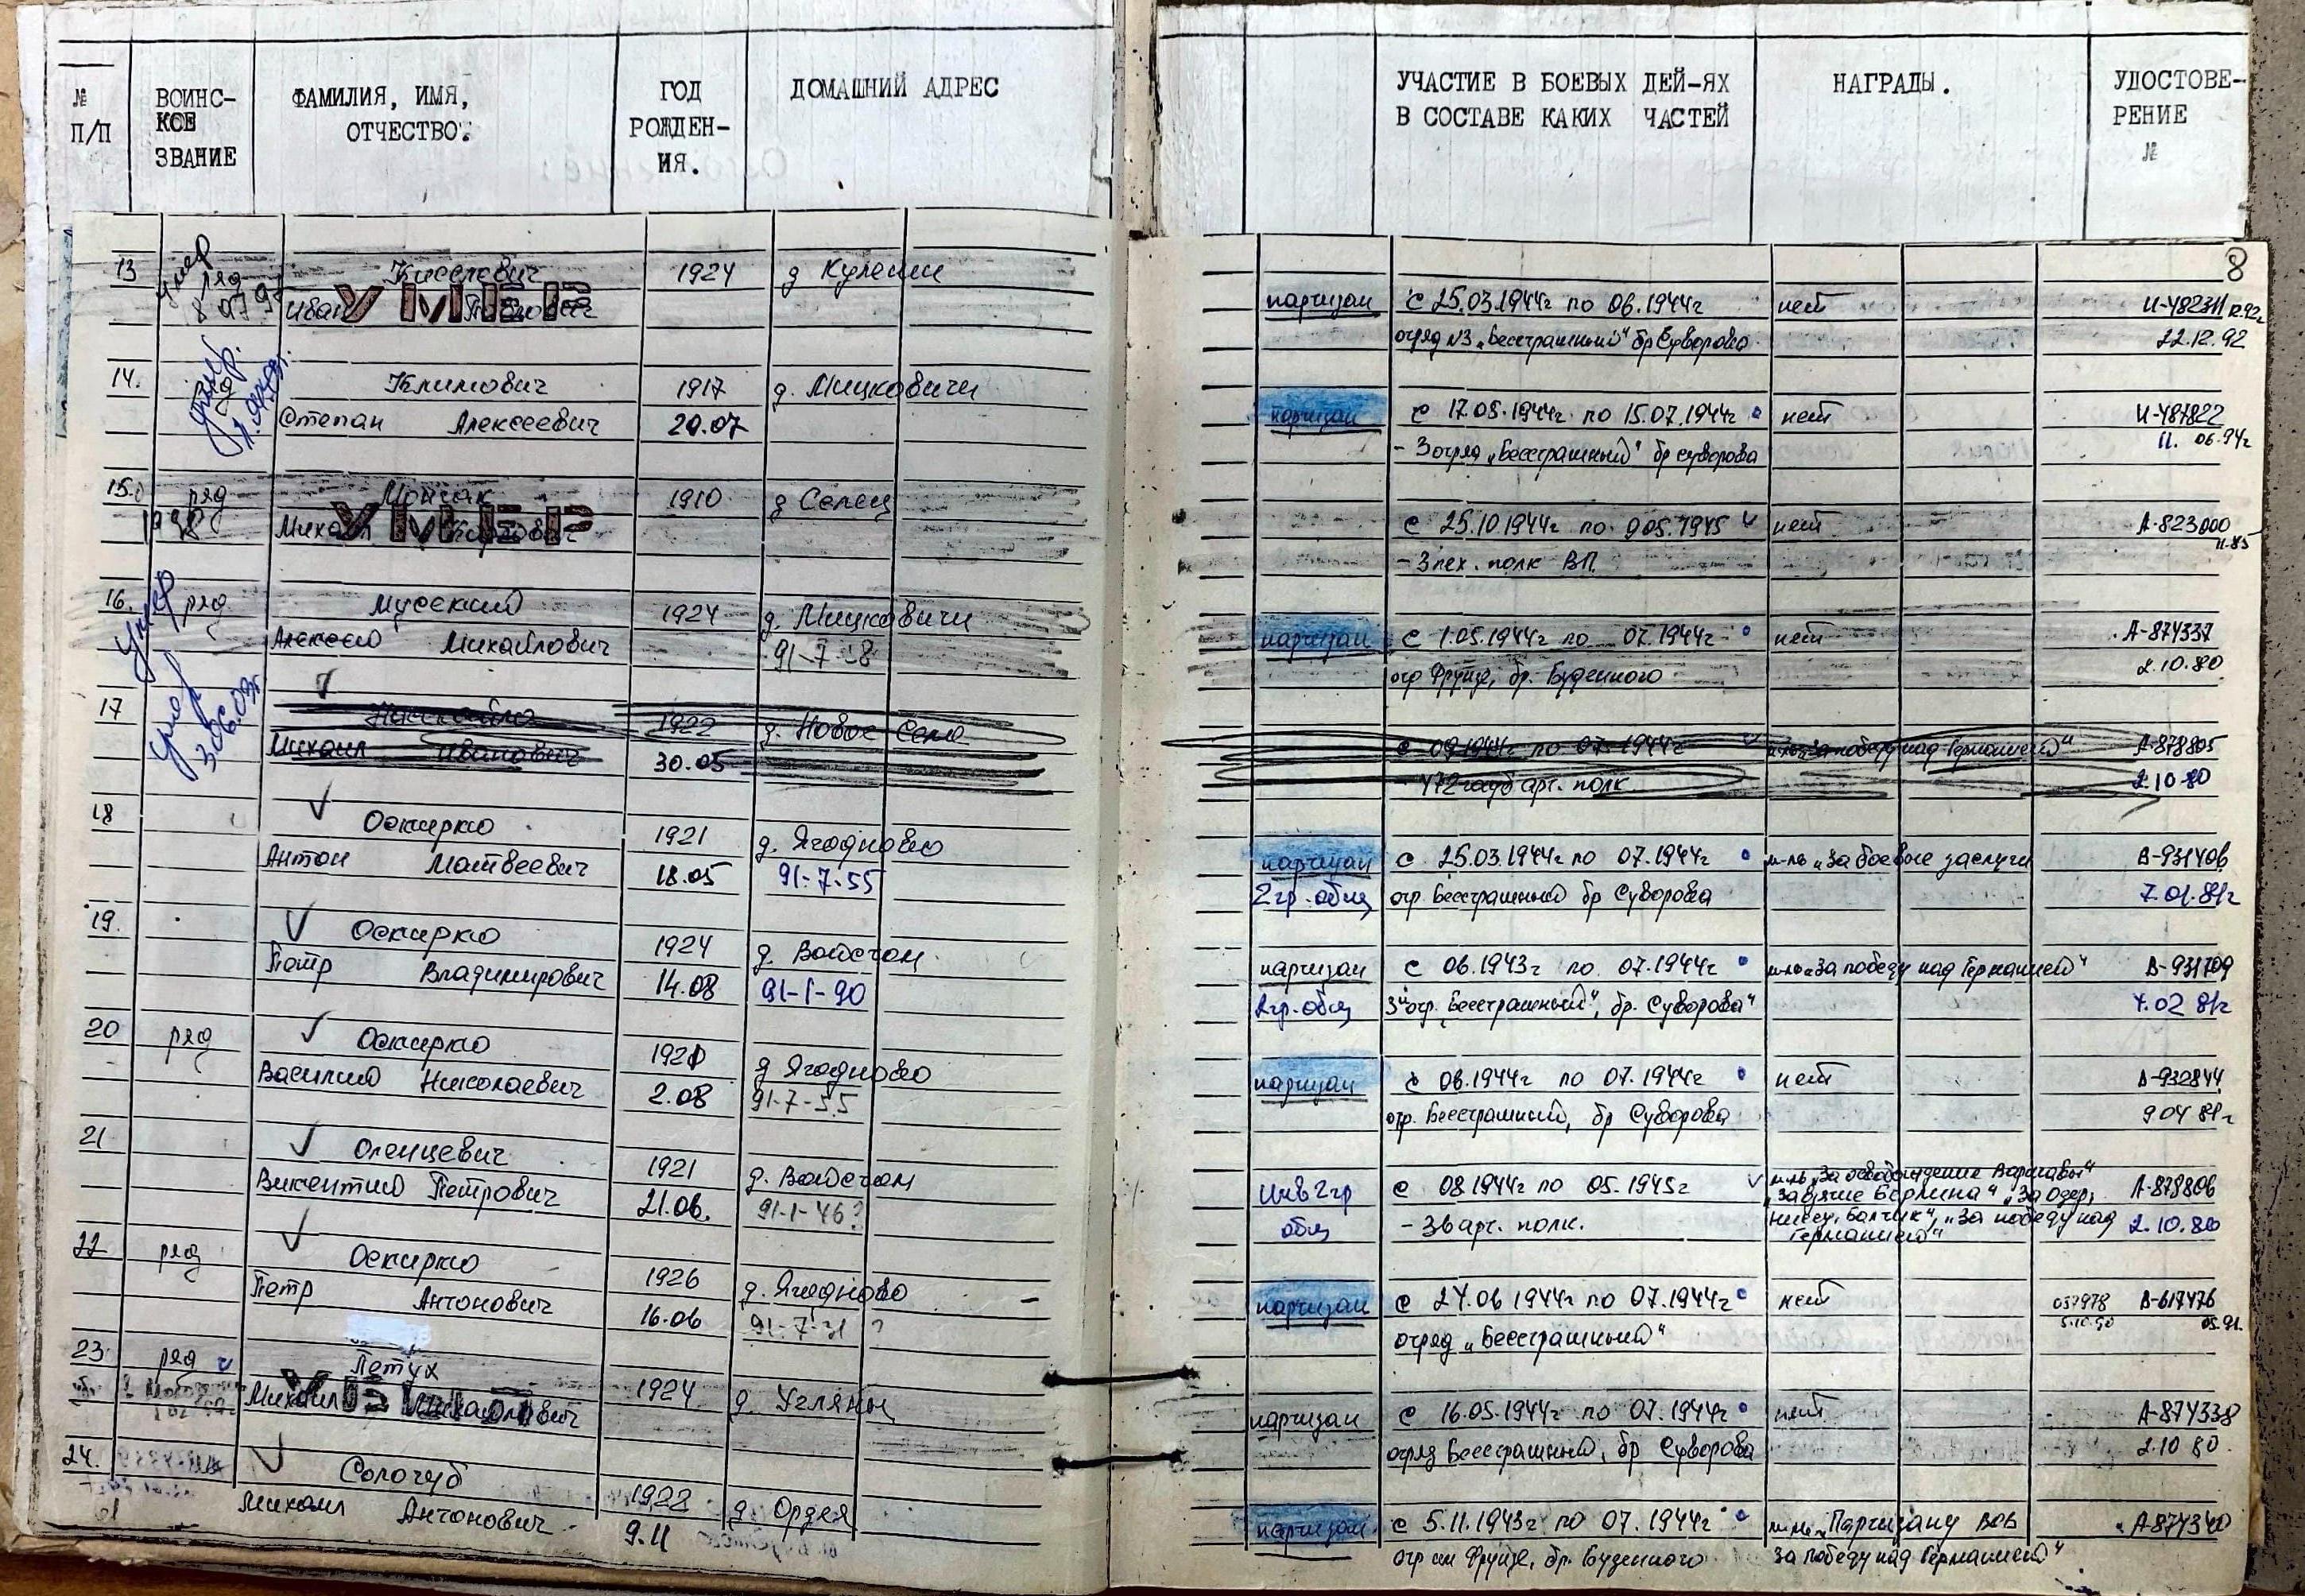 № П/П
ВОИНС-
КОЕ
ЗВАНИЕ
ФАМИЛИЯ, ИМЯ,
ОТЧЕСТВО.
ГОД
РОЖДЕН-
ИЯ.
ДОМАШНИЙ АДРЕС
УЧАСТИЕ В БОЕВЫХ ДЕЙ-ЯХ
В СОСТАВЕ КАКИХ ЧАСТЕЙ
НАГРАДЫ.
УДОСТОВЕ-
РЕНИЕ
№
8
13 умер ряд 1924 д Кулеши
Иван УМЕР
партизан с 25.03.1944г по 06.1944г нет И-482311 12.92г
отряд N3 „Бесстрашный" бр Суворова 22.12.92
14. умер. Климович 1917 д. Мицкевичи
Степан Алексеевич 20.07
партизан с 17.05.1944г по 15.07.1944г нет И-487822
- 3 отряд „Бесстрашный" бр Суворова 11. 06.94г
15. ряд Мойсак 1910 д Селец
1998 Михаил УМЕР
с 25.10.1944г по 9.05.1945 нет А-823000
- 3 пех. полк ВП. 11.85
16. умер ряд Мусский 1924 д. Мицкевичи
Алексей Михайлович 91-7-28
партизан с 1.05.1944г по 07.1944г нет А-874337
отр Фрунзе, бр. Буденного 2.10.80
17 умер 1922 д. Новое Село
3.06.03г Михаил Иванович 30.05
с 09.1944г по 07.1944г м-ль „За победу над Германией" А-878805
- 472 гауб арт. полк 2.10 80
18 Оскирко 1921 д. Ягодново
Антон Матвеевич 18.05 91-7-55
партизан с 25.03.1944г по 07.1944г м-ль „За боевые заслуги В-931406
2 гр. общ отр. Бесстрашный бр Суворова 7.01.81г
19. Оскирко 1924 д. Войстом
Петр Владимирович 14.08 91-1-90
партизан с 06.1943г по 07.1944г м-ль „За победу над Германией" В-931709
2 гр. общ 3й отр. „Бесстрашный", бр. Суворова" 4.02 81г
20 ряд Оскирко 1920 д Ягодново
Василий Николаевич 2.08 91-7-55
партизан с 06.1944г по 07.1944г нет В-932844
отр. Бесстрашный, бр Суворова 9 04 81г
21 Оленцевич 1921 д. Войстом
Викентий Петрович 21.06. 91-1-46?
инв 2 гр с 08 1944г по 05.1945г м-ль „За освобождение Варшавы" А-878806
„За взятие Берлина" „За Одер,
общ - 36 арт. полк. Балтик", „За победу над 2.10.80
Германией"
22 ряд Оскирко 1926 д. Ягодново
Петр Антонович 16.06 91-7-31 ?
партизан с 24.06 1944г по 07.1944г нет 037978 В-617476
отряд „Бесстрашный" 5.10.90 05.91.
23 ряд Петух 1924 д. Угляны
Михаил Михайлович
партизан с 16.05.1944г по 07.1944г нет А-874338
отряд Бесстрашный, бр Суворова 2.10 80.
24. Сологуб 1928 д. Ордея
Михаил Антонович 9.11
партизан с 5.11.1943г по 07.1944г м-ль „Партизану ВОВ А-874340
отр им Фрунзе, бр. Буденного За победу над Германией"